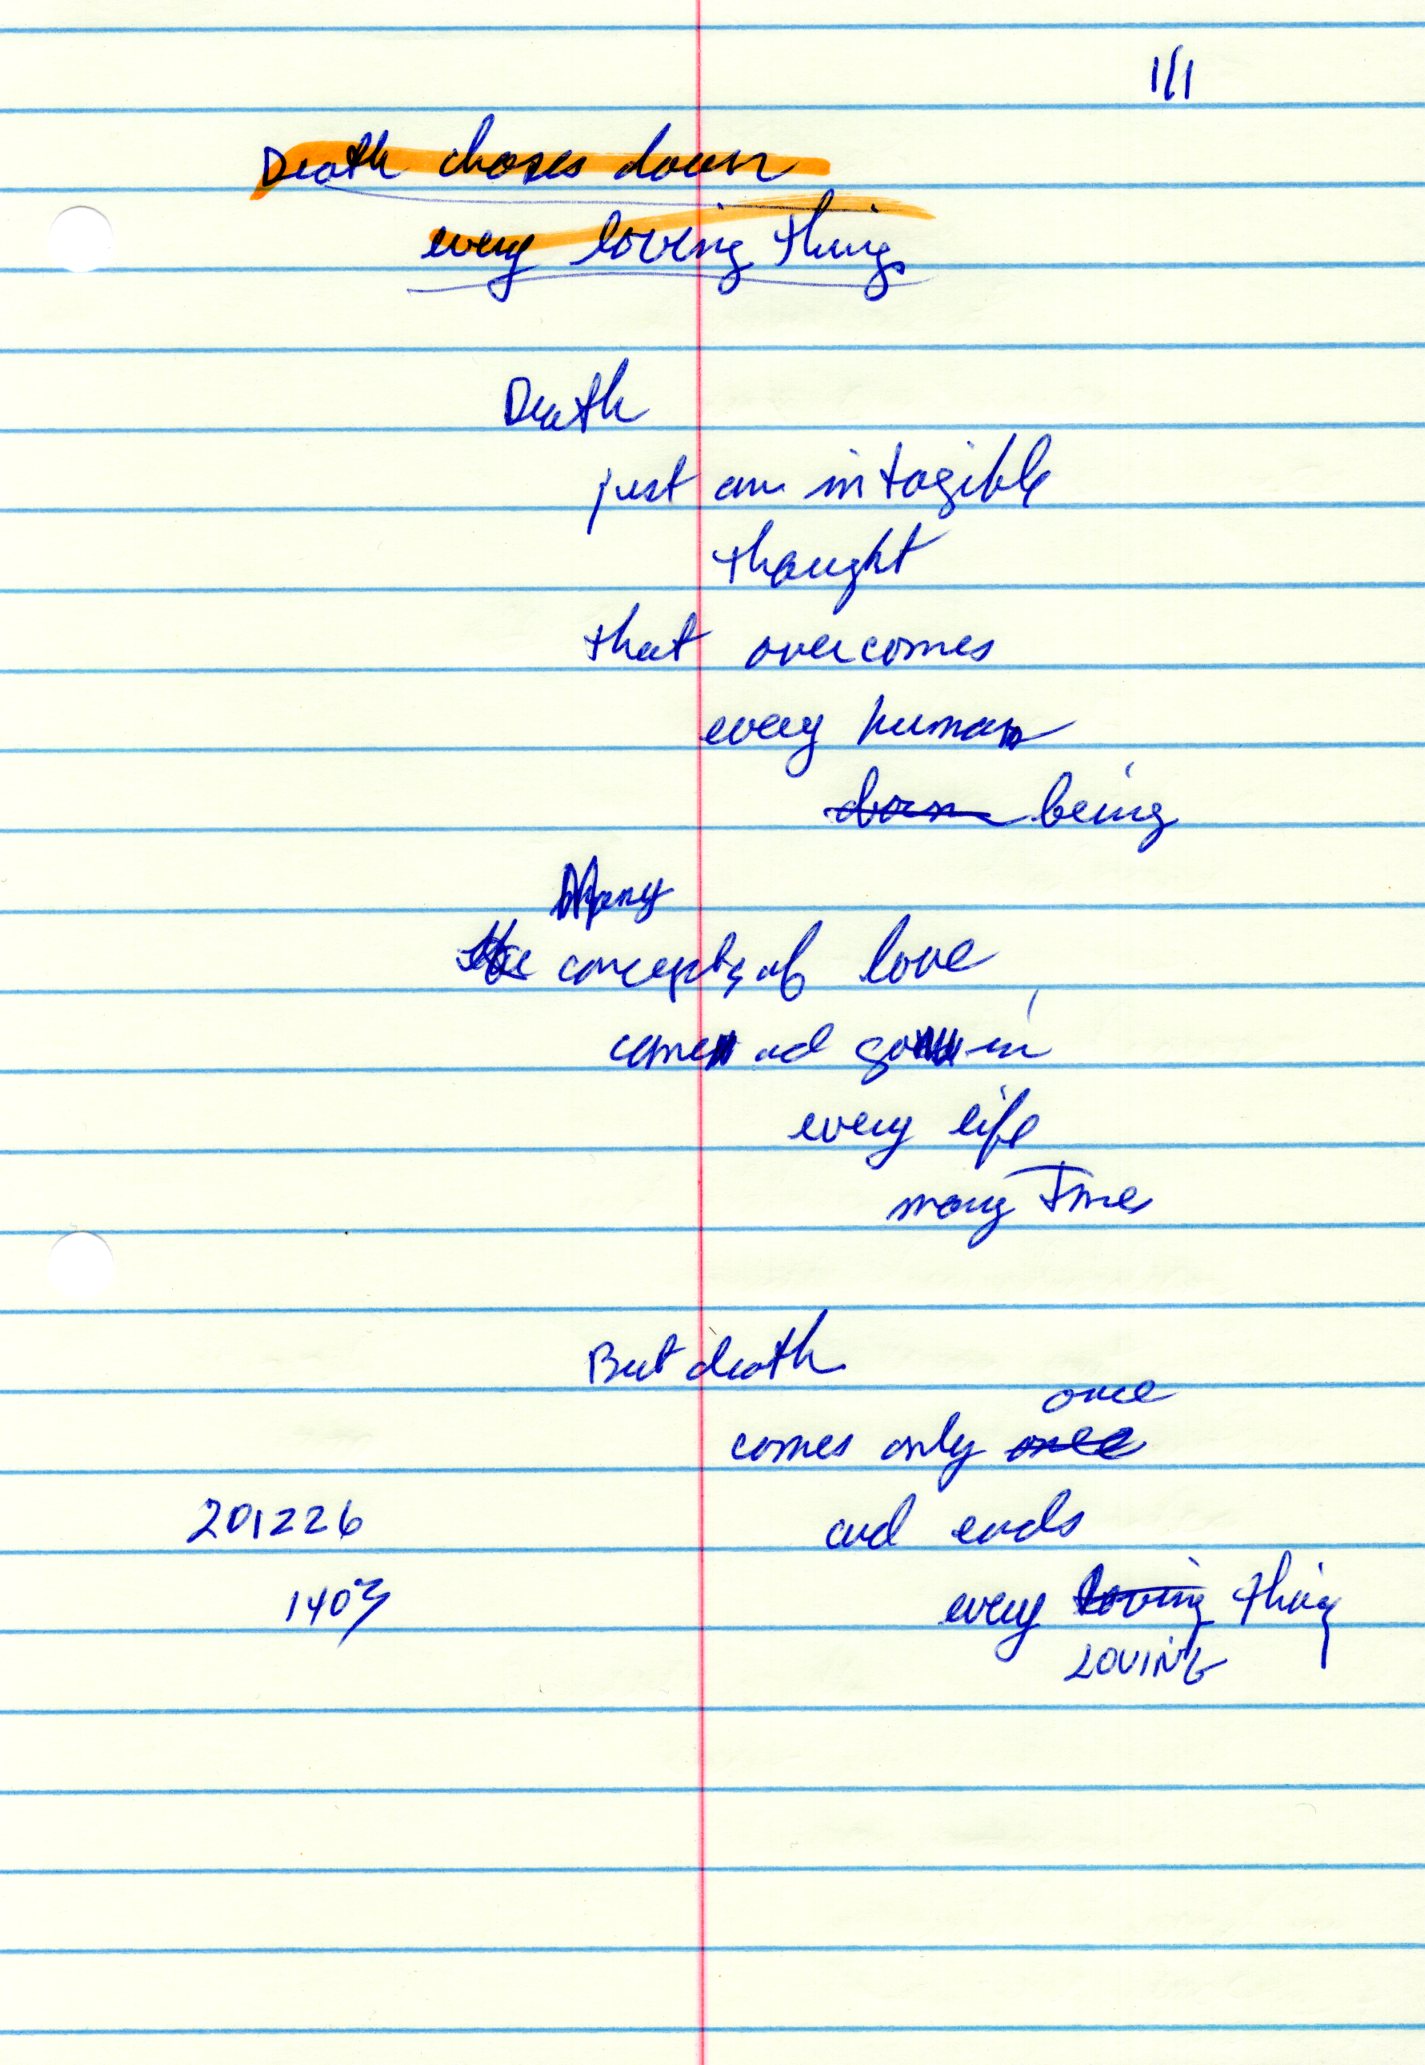 1/1
Death chases down
every loving thing
Death
just an intagible
thought
that overcomes
every human
down being
Many
the concepts of love
come ad go in
every life
many Time
But death
once
comes only once
and ends
201226
every loving thing
1403
LOVING